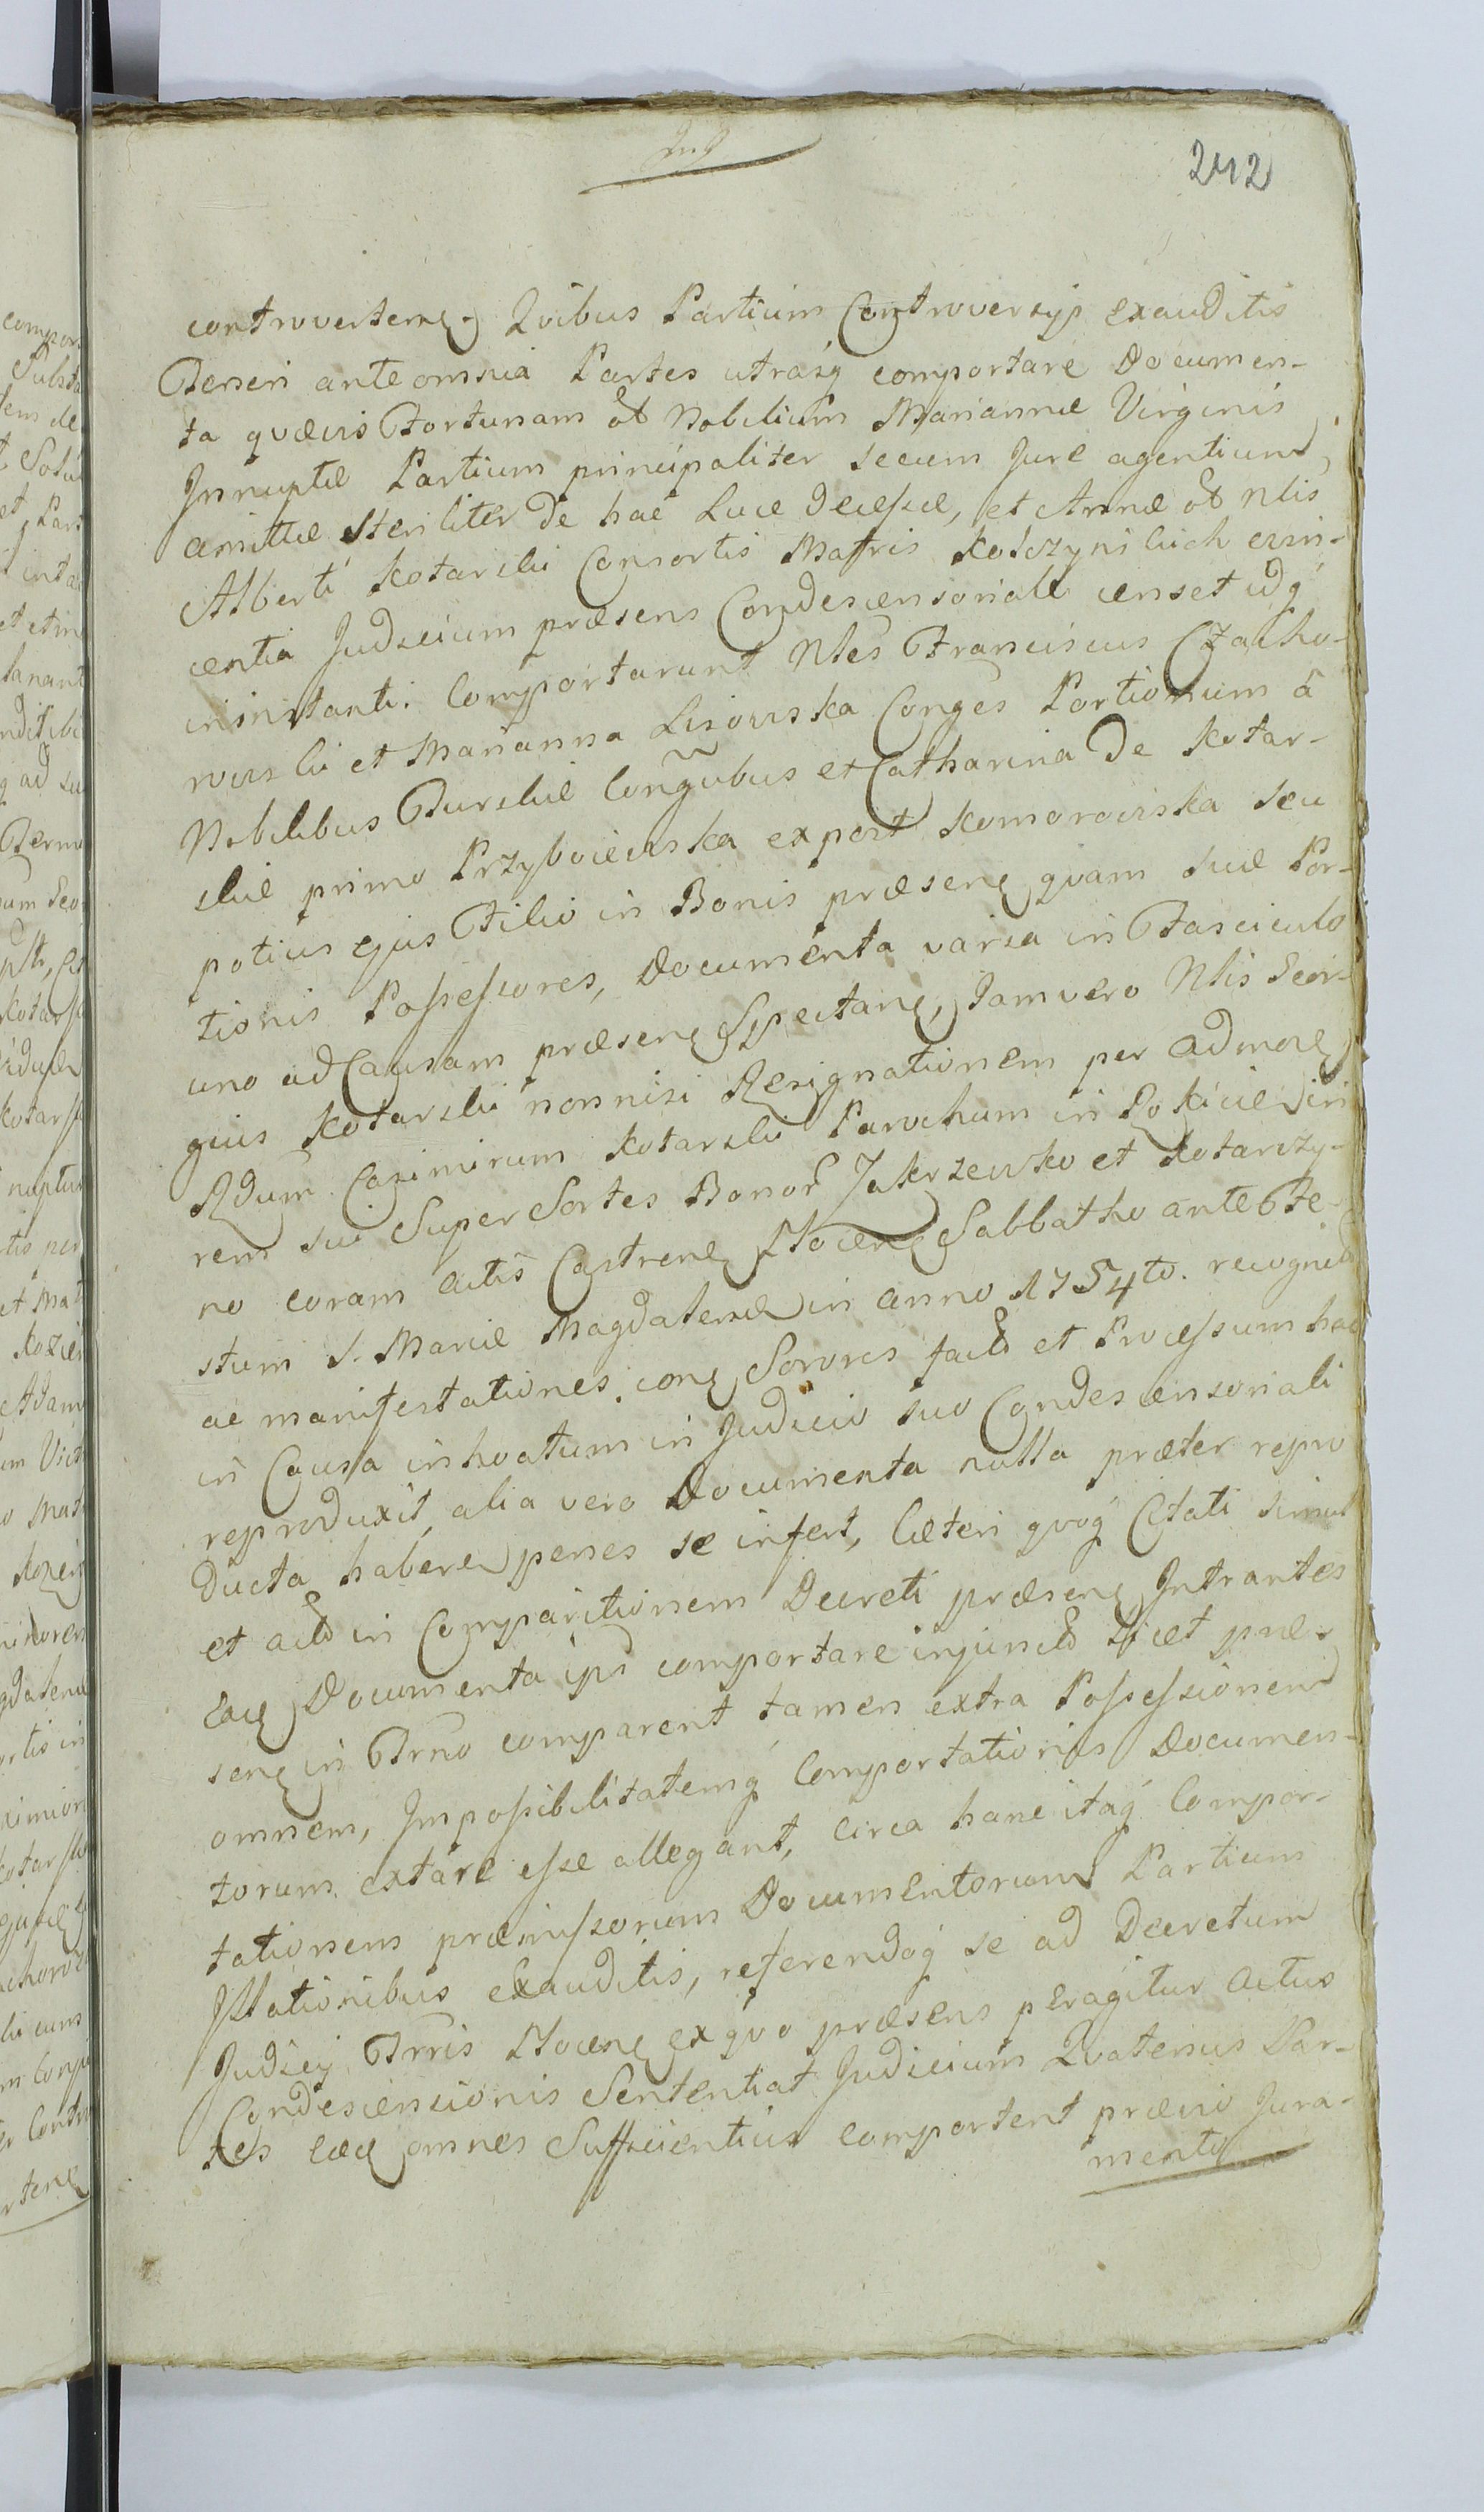 242
controverteñ. Qvibus Partium Controversÿs exauditis
Teneri ante omnia Partes utrasq comportare Documen-
ta qvævis Fortunam olĩ Nobilium Mariannæ Virginis
Innuptæ Partium principaliter secum Jure agentium,
amittæ steriliter de hac Luce decessæ, et Annæ olĩ Nlis
Alberti Kotarski Consortis Matris Kolczynskich evin-
centia Judicium præsens Condescensoriale censet idq
in instanti. Comportarunt Nles Franciscus Czacho-
rowski et Marianna Lisowska Conges Portionum â
Nobilibus Turskie Congubus et Catharina de Kotar-
skie primo Przybociewska expost Komorowska seu
potius ejus Filio in Bonis præseñ qvam suæ Por-
tionis Possessores, Documenta varia in Fasciculo
uno ad Causam præseñ Spectañ, Jam vero Nlis Geor-
gius Kotarski nonnisi Resignationem per Admoñ
Rdum Casimirum Kotarski Parochum in Lokicie in
rem sui Super Sortes Bonor Zakrzewko et Kotarczy-
no coram actis Castreñ Ploceñ Sabbatho ante Fe-
stum S. Mariæ Magdalenæ in anno 1754to. recognitã
ac manifestationes coñ Sorores factã et Processum hac
in Causa inhoatum in Judicio suo Condescensoriali
reproduxit, alia vero Documenta nulla præter repro
ducta habere penes se infert, Cæteri qvoq Citati simul
et actã in Comparitionem Decreti præseñ Intrantes
Eaeq Documenta ipĩs comportare injunctã licet præ-
señ in Trno comparent tamen extra Possessionem
omnem, Impossibilitatemq Comportationis Documen-
torum extare esse allegant, circa hanc itaq Compor-
tationem præmissorum Documentorum Partium
Illationibus exauditis, referendoq se ad Decretum
Judicij Trris Ploceñ ex qvo præsens peragitur actus
Condescensionis Sententiat Judicium Qvatenus Par-
tes eæq omnes Sufficientius comportent prævio Jura-
mento